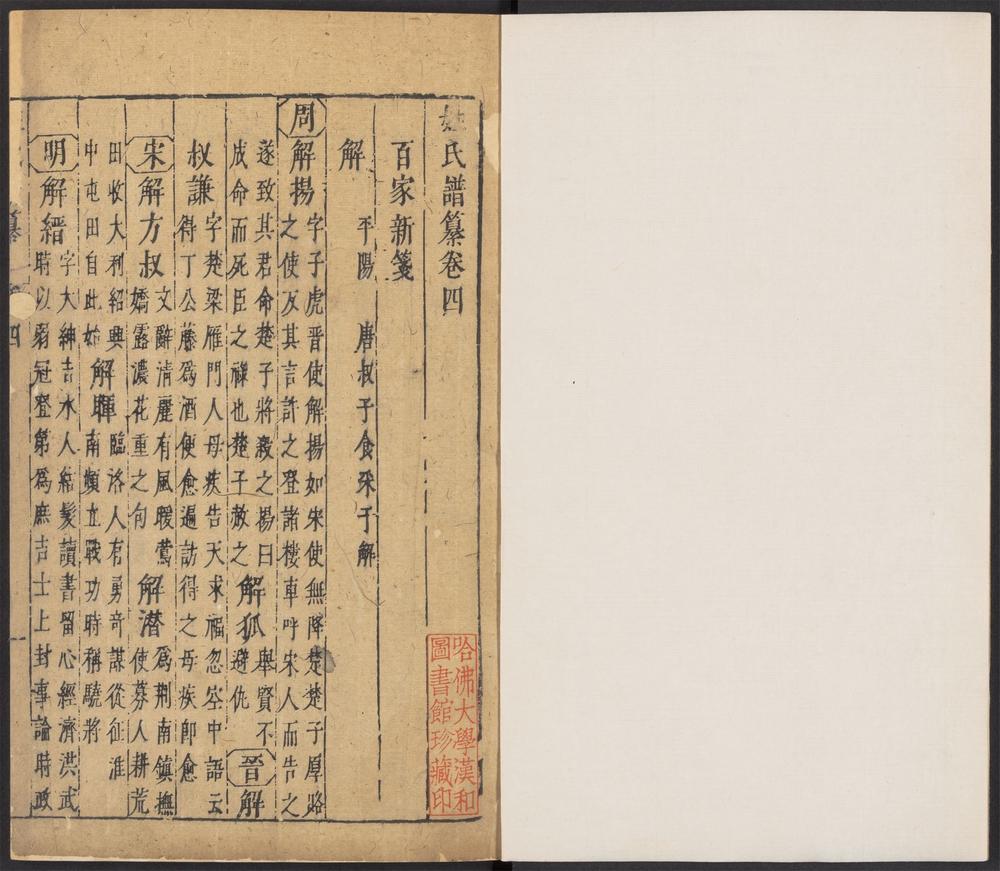 姓氏譜纂卷四
百家新箋
解 平陽 唐叔子食采于解
周 解揚 字子虎晉使解揚如宋使無降楚楚子厚路
之使反其言許之登諸樓車呼宋人而告之
遂致其君命楚子將殺之揚曰 解狐 舉賢不
成命而死臣之祿也楚子赦之 避仇 晉 解
叔謙 字楚梁雁門人母疾告天求福忽空中語云
得丁公藤為酒便愈遍訪得之母疾即愈
宋 解方叔 文辭清麗有風暖鶯 解潛 為荆南鎮撫
嬌露濃花重之句 使募人耕荒
田收大利紹興 解暉 臨洺人有勇奇謀從征淮
中屯田自此始 南頻立戰功時稱驍將
明 解縉 字大紳吉水人結髮讀書畱心經濟洪武
時以弱冠登第為庶吉士上封事論時政
纂
四
哈佛大學漢和
圖書館珍藏印